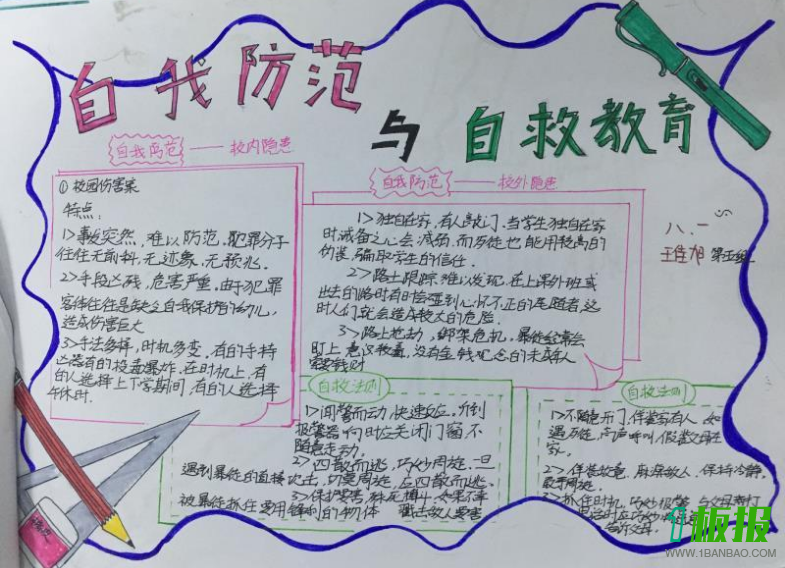 自我防范
与 自救教育
自我防范 —— 校内隐患
① 校园伤害案
特点：
1> 事发突然，难以防范，犯罪分子
往往无前科，无迹象，无预兆。
2> 手段凶残，危害严重，由于犯罪
客体往往是缺乏自我保护的幼儿，
造成伤害巨大
3> 手法多样，时机多变，有的手持
凶器有的投毒爆炸，在时机上，有
的人选择上下学期间，有的人选择
午休时．
自我防范 —— 校外隐患
1> 独自在家，有人敲门，当学生独自在家
时戒备之心会减弱，而歹徒也能用较高的
伪装，骗取学生的信任．
2> 路上跟踪难以发现，在上课外班或
出去的路时有时会碰到心怀不正的尾随者，这
时人们就会造成较大的危险．
3> 路上抢劫，绑架危机，暴徒经常会
盯上 没有金钱观念的未成年人
索要钱财
八．一
王佳旭 第五组
自救法则
1> 闻警而动，快速反应，听到
报警器 时应关闭门窗，不
随意走动．
2> 四散而逃，巧妙周旋，一旦
遇到暴徒的直接攻击，切莫周旋，应四散而逃．
3> 保护要害，殊死搏斗，如果不幸
被暴徒抓住 要用锋利的物体 戳击敌人要害
自救法则
1> 不随意开门，伴装家有人，如
遇歹徒，高声呼叫，假装父母在
家．
2> 佯装故意，麻痹敌人，保持冷静，
3> 抓住时机，巧妙报警，与父母打
橡皮
1板报
WWW.1BANBAO.COM